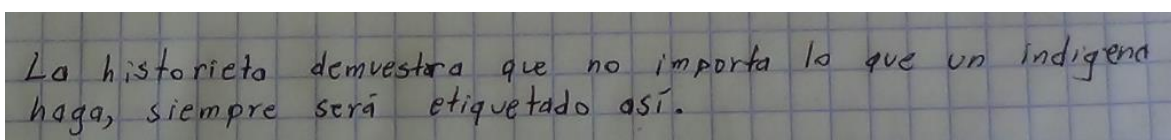 La historieta demuestra que no importa lo que un indigena
haga, siempre será etiquetado así.